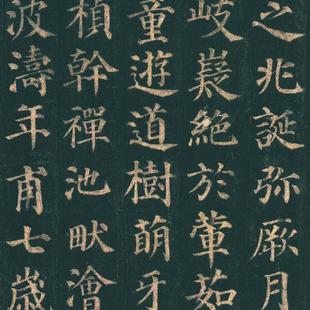 之兆誕弥厥月
岐嶷絕於葷茹
童遊道樹萌牙
楨幹禪池畎澮
波濤年甫七歲